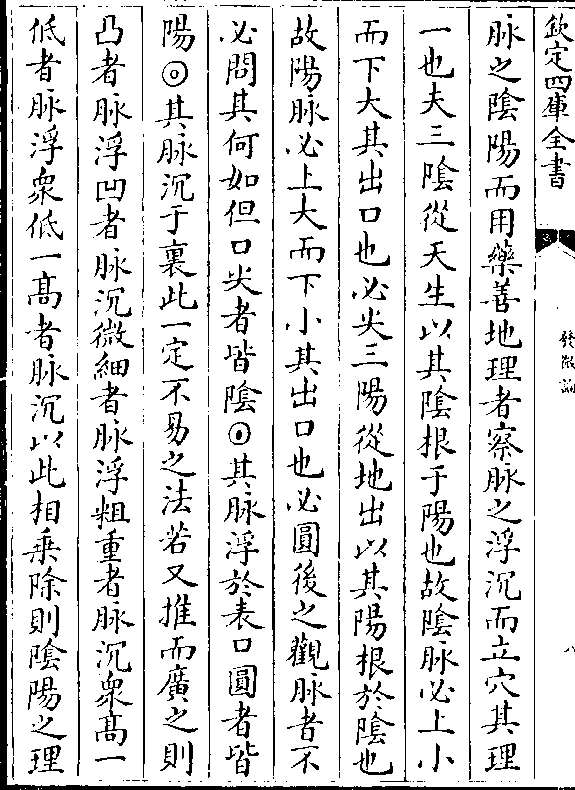 欽定四庫全書
發微論
八
脉之陰陽而用藥善地理者察脉之浮沉而立穴其理
一也夫三陰從天生以其陰根于陽也故陰脉必上小
而下大其出口也必尖三陽從地出以其陽根於陰也
故陽脉必上大而下小其出口也必圓後之觀脉者不
必問其何如但口尖者皆陰⊙其脉浮於表口圓者皆
陽◎其脉沉于裏此一定不易之法若又推而廣之則
凸者脉浮凹者脉沉微細者脉浮粗重者脉沉衆髙一
低者脉浮衆低一髙者脉沉以此相乗除則陰陽之理